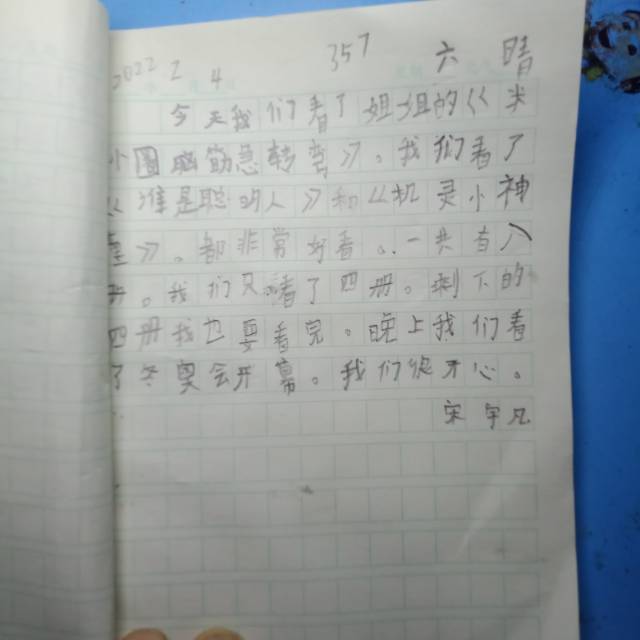 2022 2 4 357 六 晴
今天我们看了姐姐的《米
小圈脑筋急转弯》。我们看了
《谁是聪明人》和《机灵小神
童》。都非常好看。一共有八
册。我们只看了四册。剩下的
四册我也要看完。晚上我们看
了冬奥会开幕。我们很开心。
宋